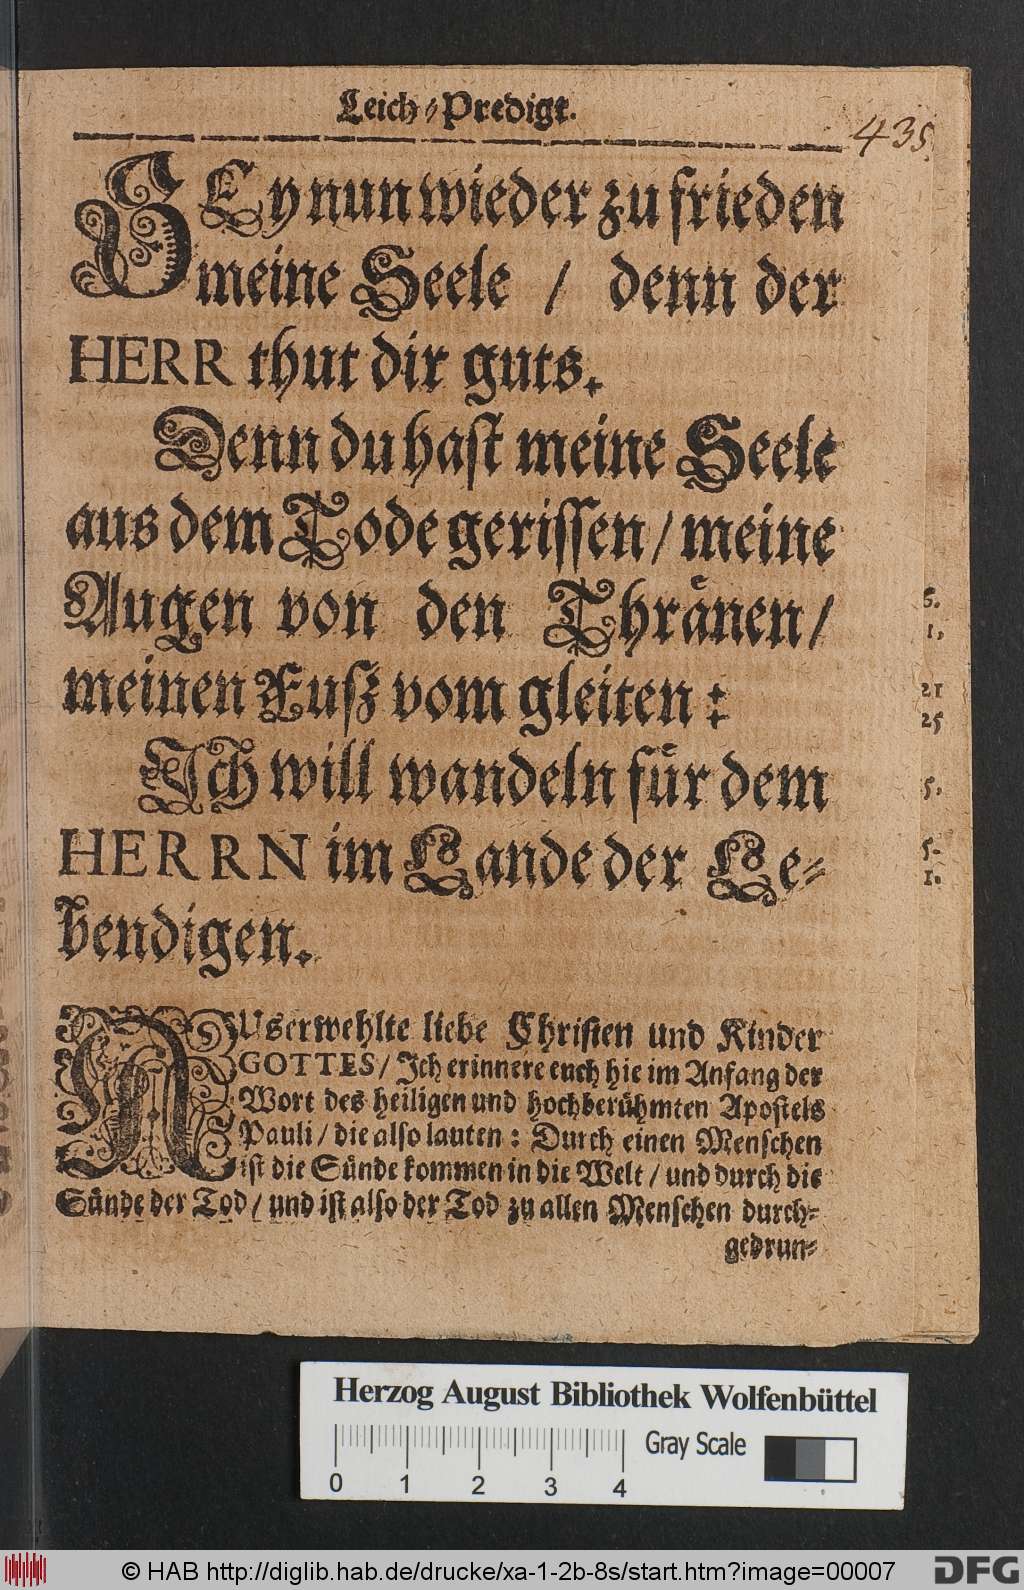 Leich-Predigt.
435.
SEy nun wieder zu frieden
meine Seele / denn der
HERR thut dir guts.
Denn du hast meine Seele
aus dem Tode gerissen / meine
Augen von den Thrånen /
meinen Fuß vom gleiten :
Ich will wandeln für dem
HERRN im Lande der Le-
bendigen.
AUserwehlte liebe Christen und Kinder
GOTTES / Ich erinnere euch hie im Anfang der
Wort des heiligen und hochberühmten Apostels
Pauli / die also lauten : Durch einen Menschen
ist die Sünde kommen in die Welt / und durch die
Sünde der Tod / und ist also der Tod zu allen Menschen durch-
gedrun-
5.
1.
21
25
5.
5.
1.
Herzog August Bibliothek Wolfenbüttel
Gray Scale
0 1 2 3 4
© HAB http://diglib.hab.de/drucke/xa-1-2b-8s/start.htm?image=00007
DFG